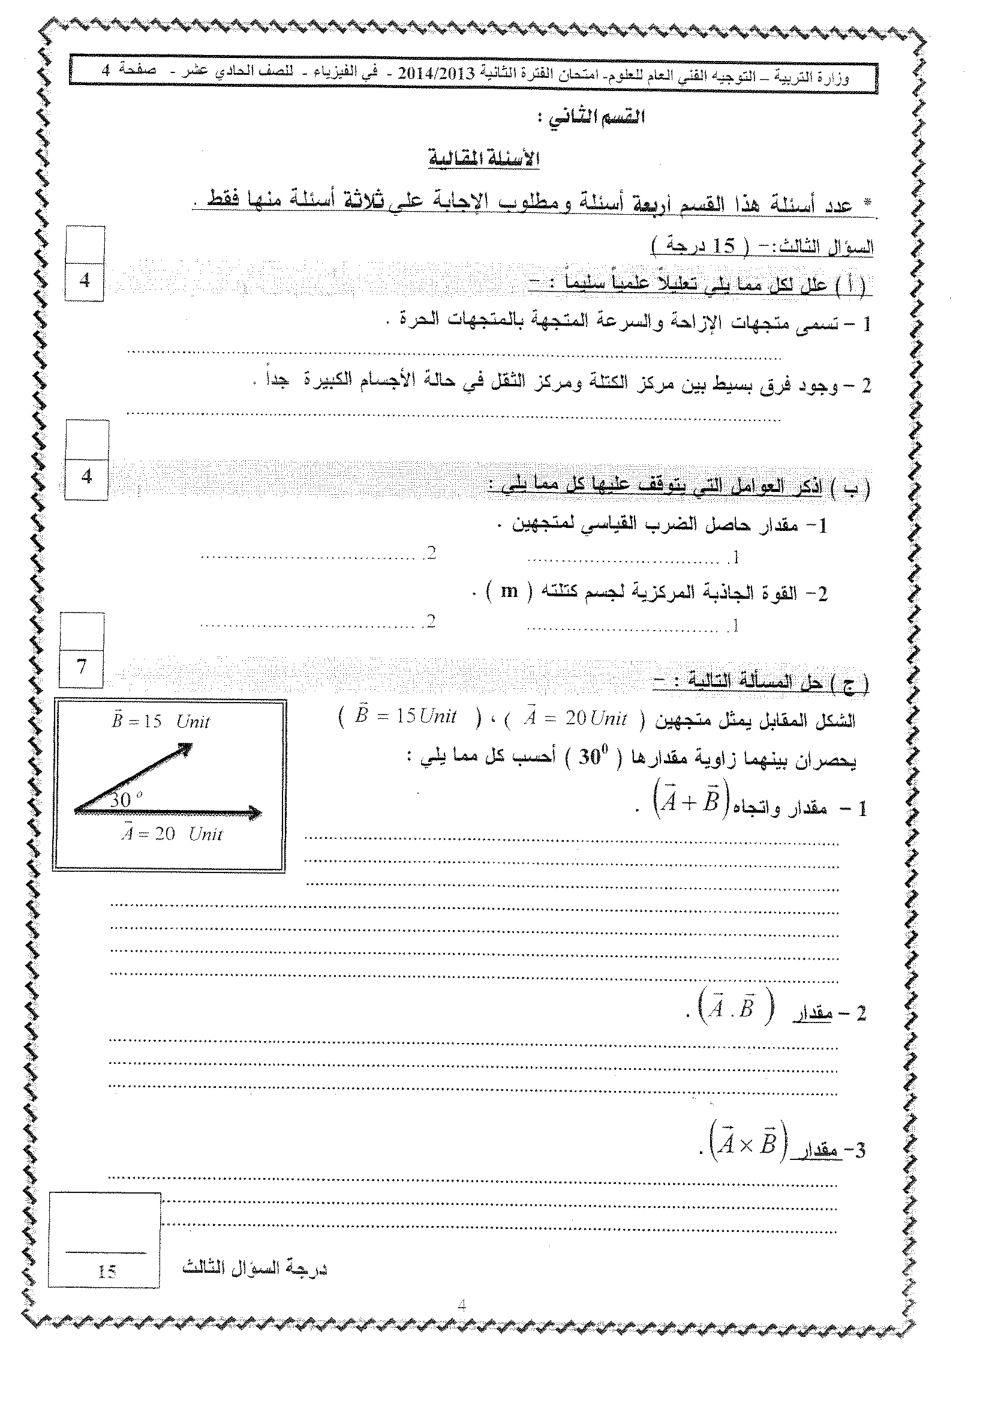 وزارة التربية – التوجيه الفني العام للعلوم- امتحان الفترة الثانية 2014/2013 - في الفيزياء - للصف الحادي عشر - صفحة 4
القسم الثاني :
الأسئلة المقالية
* عدد أسئلة هذا القسم أربعة أسئلة ومطلوب الإجابة علي ثلاثة أسئلة منها فقط .
السؤال الثالث:– ( 15 درجة )
( أ ) علل لكل مما يلي تعليلاً علمياً سليماً : –
4
1 – تسمى متجهات الإزاحة والسرعة المتجهة بالمتجهات الحرة .
2 – وجود فرق بسيط بين مركز الكتلة ومركز الثقل في حالة الأجسام الكبيرة جداً .
4
( ب ) اذكر العوامل التي يتوقف عليها كل مما يلي :
1- مقدار حاصل الضرب القياسي لمتجهين .
1. 2.
2- القوة الجاذبة المركزية لجسم كتلته ( m ) .
1. 2.
7
( ج ) حل المسألة التالية : –
الشكل المقابل يمثل متجهين ( A⃗ = 20 Unit ) ، ( B⃗ = 15 Unit )
يحصران بينهما زاوية مقدارها ( 30⁰ ) أحسب كل مما يلي :
B⃗ = 15 Unit
30 °
A⃗ = 20 Unit
1 – مقدار واتجاه (A⃗ + B⃗) .
2 – مقدار (A⃗ . B⃗) .
3- مقدار (A⃗ × B⃗) .
15
درجة السؤال الثالث
4